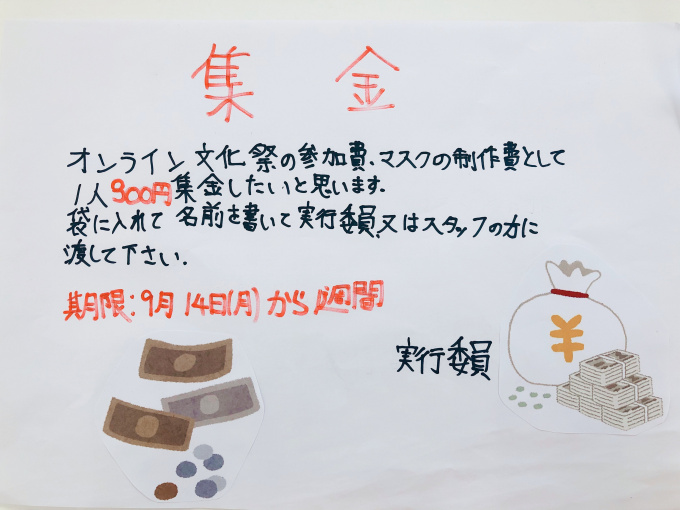 集金
オンライン文化祭の参加費、マスクの制作費として
1人900円集金したいと思います。
袋に入れて名前を書いて実行委員、又はスタッフの方に
渡して下さい。
期限:9月14日(月)から1週間
実行委員
¥